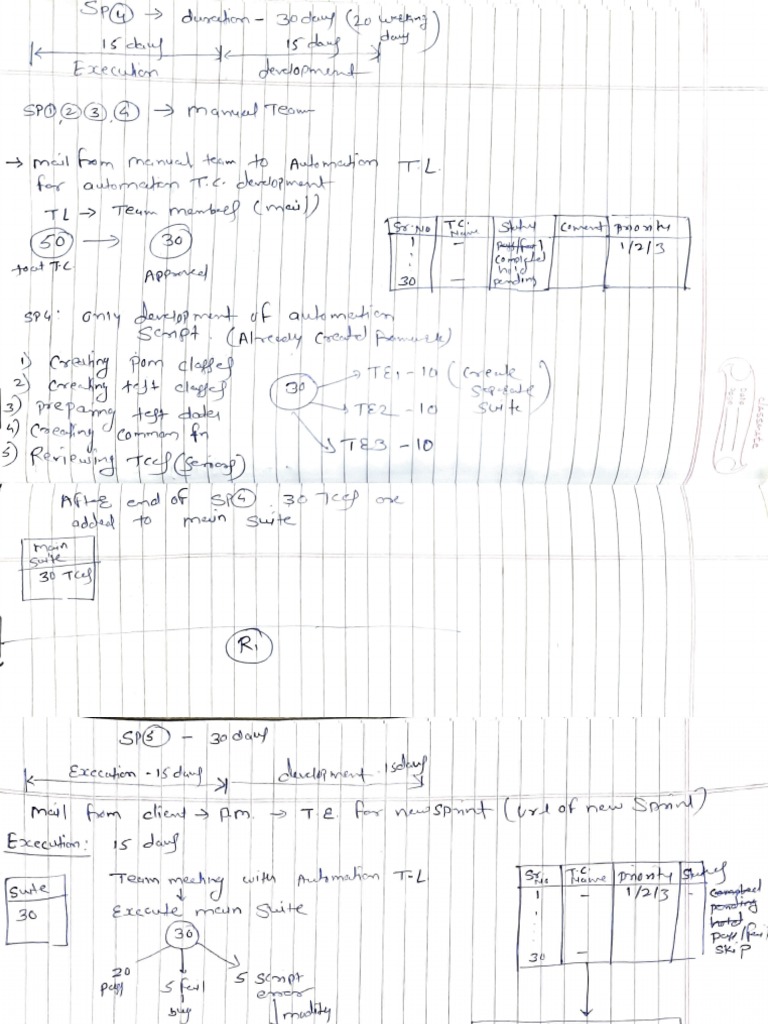 SP④ → duration - 30 days (20 working days)
15 days 15 days
Execution development
SP①,②,③,④ → manual Team
→ mail from manual team to Automation T.L.
for automation T.C. development
TL → Team members (mail)
50 → 30
toat T.C. Approved
Sr.No T.C. Name Status Comment Priority
1 - pass/fail 1/2/3
completed
hold
30 - pending
SP4: only development of automation
script. (Already created framework)
1) Creating pom classes
2) Creating test classes
3) preparing test data
4) Creating common fn
5) Reviewing Tces (seniors)
30 → TE1 - 10 (Create separate suite)
→ TE2 - 10
→ TE3 - 10
classmate
After end of SP④ 30 Tces are
added to main suite
main suite
30 Tces
R1
SP⑤ - 30 days
Execution - 15 days development - 15 days
mail from client → P.m. → T.E. for new sprint (url of new sprint)
Execution: 15 days
Team meeting with Automation T.L
Suite
30
Execute main suite
30
20 pass 5 fail 5 script error
bug modify
Sr.No T.C. Name Priority Status
1 - 1/2/3 -
completed
pending
hold
pass/fail
skip
30 -